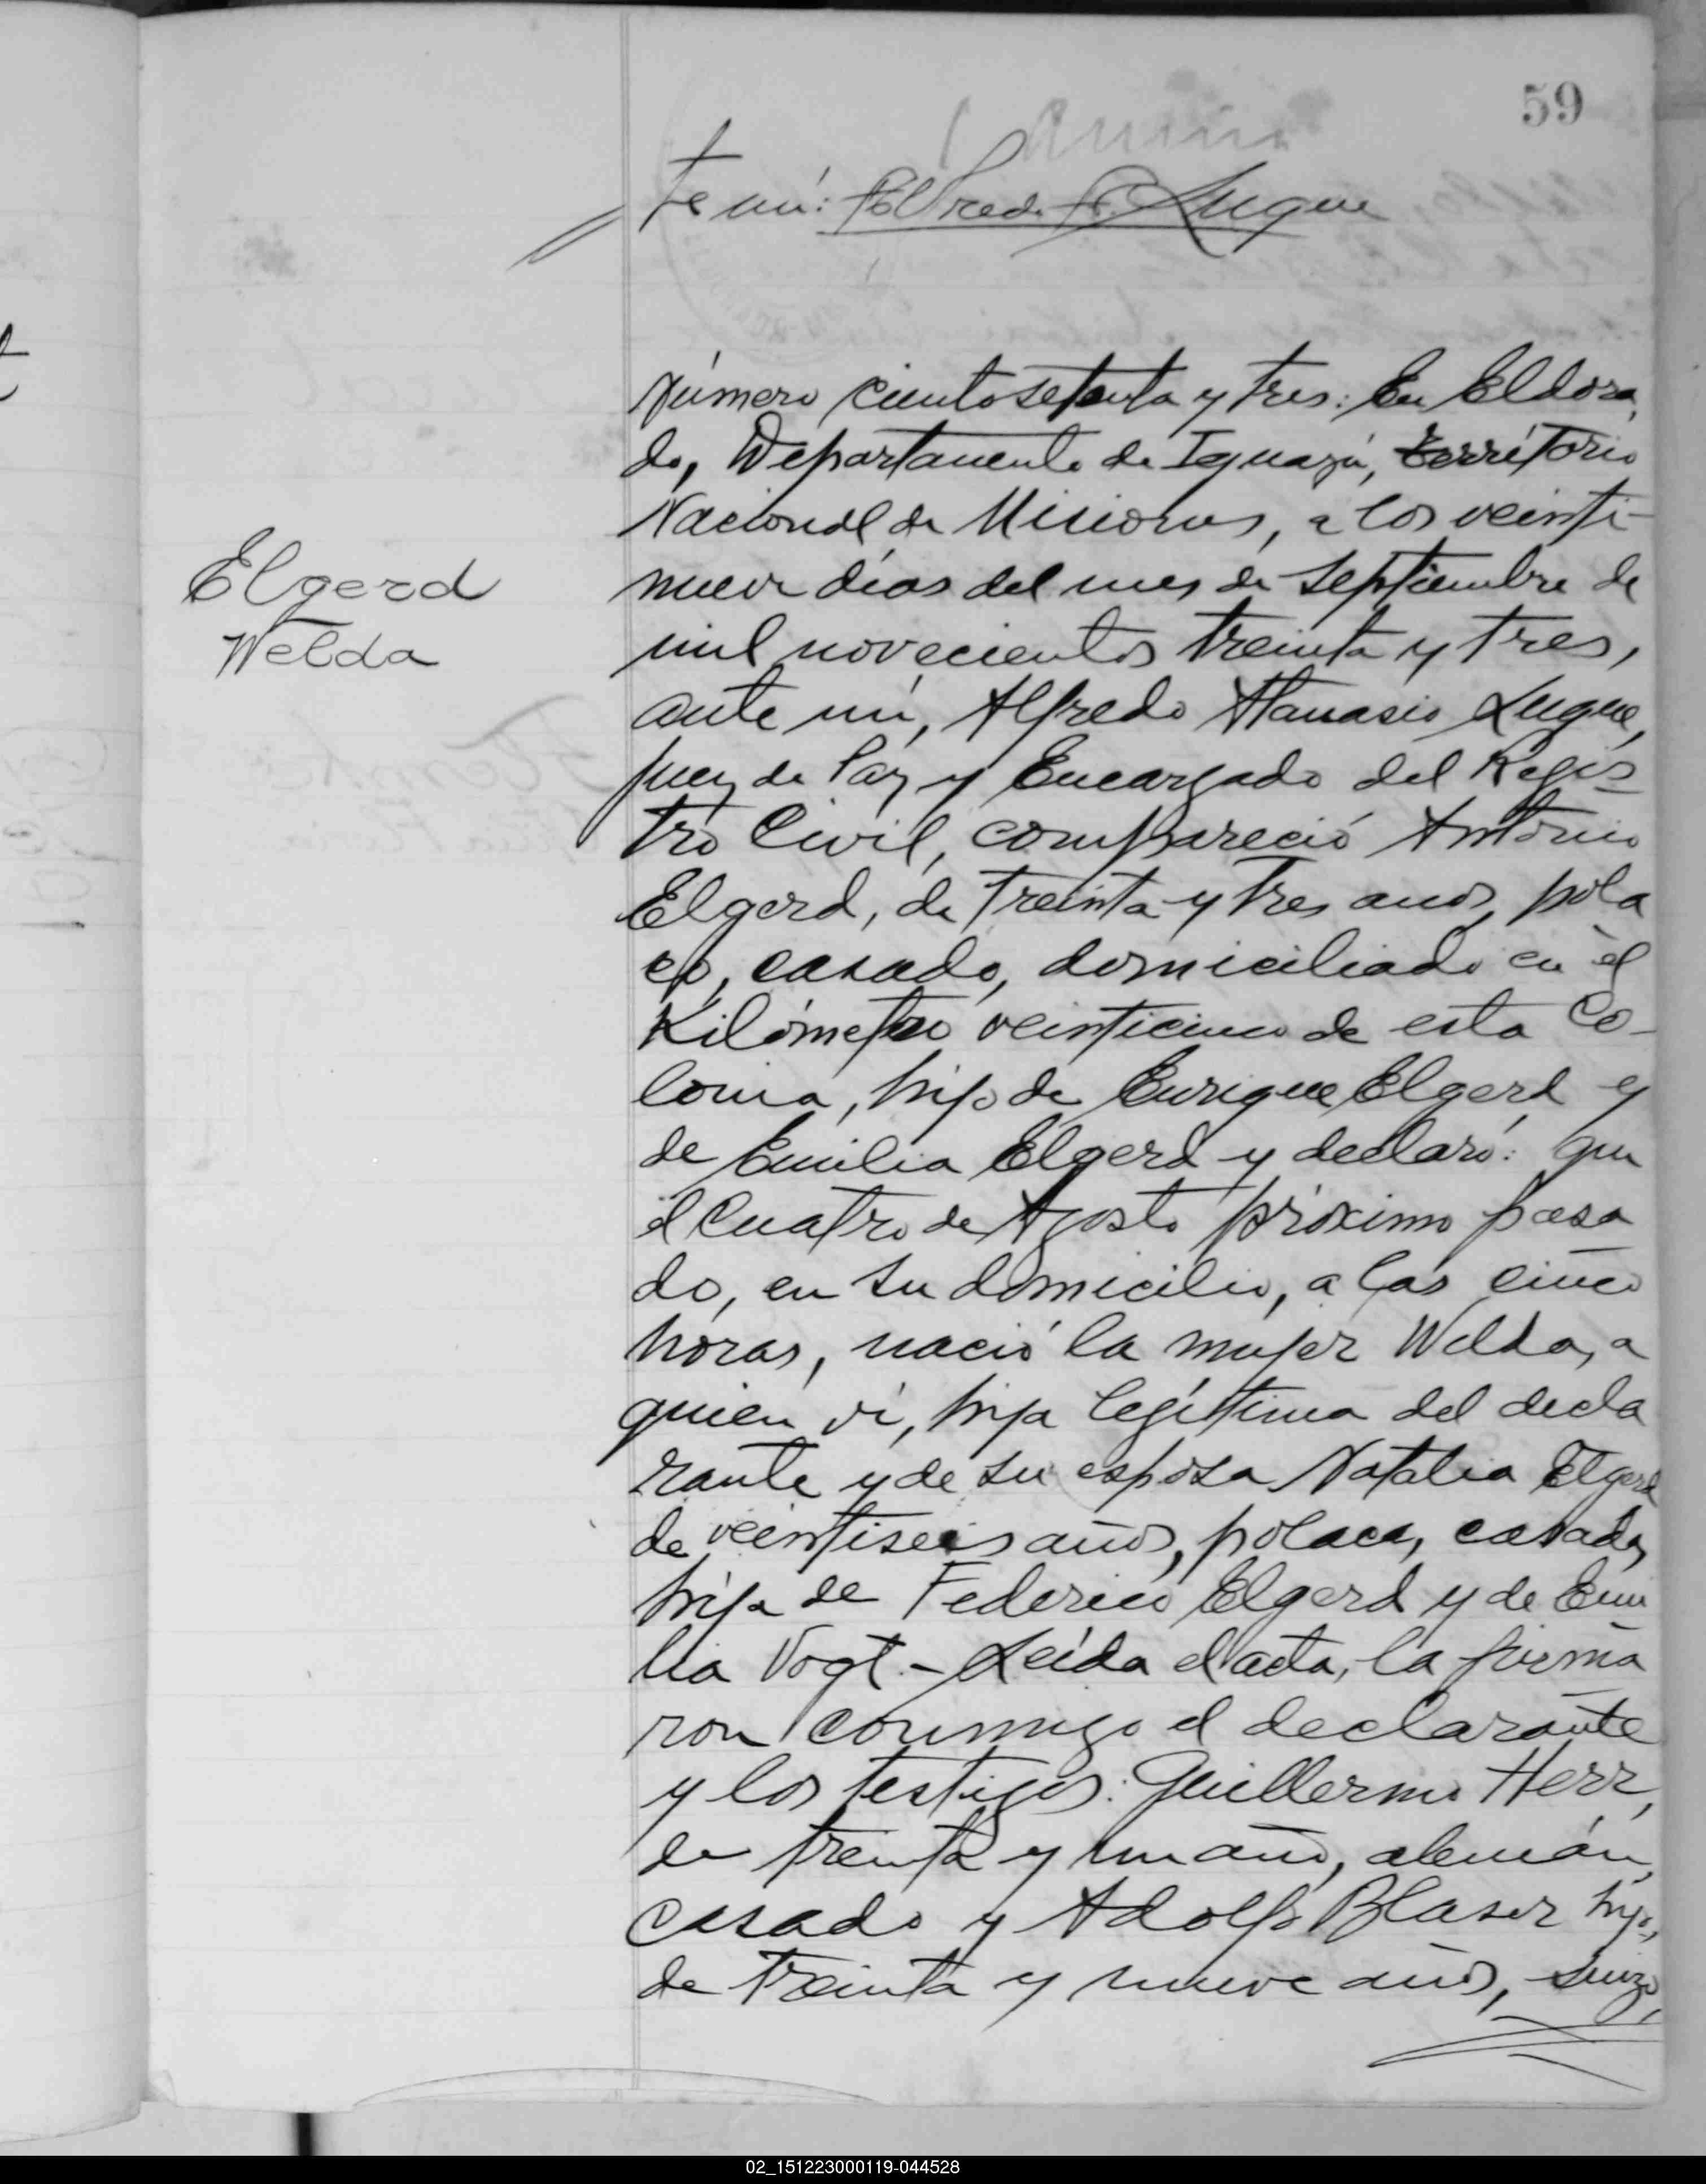 59
te mí: Alfredo A. Luque
Número ciento setenta y tres: En Eldora
do, Departamento de Iguazú, Territorio
Nacional de Misiones, a los veinti-
nueve días del mes de Septiembre de
Elgerd
Welda
mil novecientos treinta y tres,
ante mí, Alfredo Atanasio Luque,
Juez de Paz y Encargado del Regis
tro Civil, compareció Antonio
Elgerd, de treinta y tres anos, pola
co, casado, domiciliado en el
Kilómetro veinticinco de esta Co-
lonia, hijo de Enrique Elgerd y
de Emilia Elgerd y declaró: que
el cuatro de Agosto próximo pasa
do, en su domicilio, a las cinco
horas, nació la mujer Welda, a
quien ví, hija legítima del decla
rante y de su esposa Natalia Elgerd
de veintiseis años, polaca, casada,
hija de Federico Elgerd y de Emi
lia Vogt.- Leída el acta, la firma
ron conmigo el declarante
y los testigos: Guillermo Herr,
de treinta y un años, alemán,
casado y Adolfo Blaser hijo,
de treinta y nueve años, suizo,
02_151223000119-044528